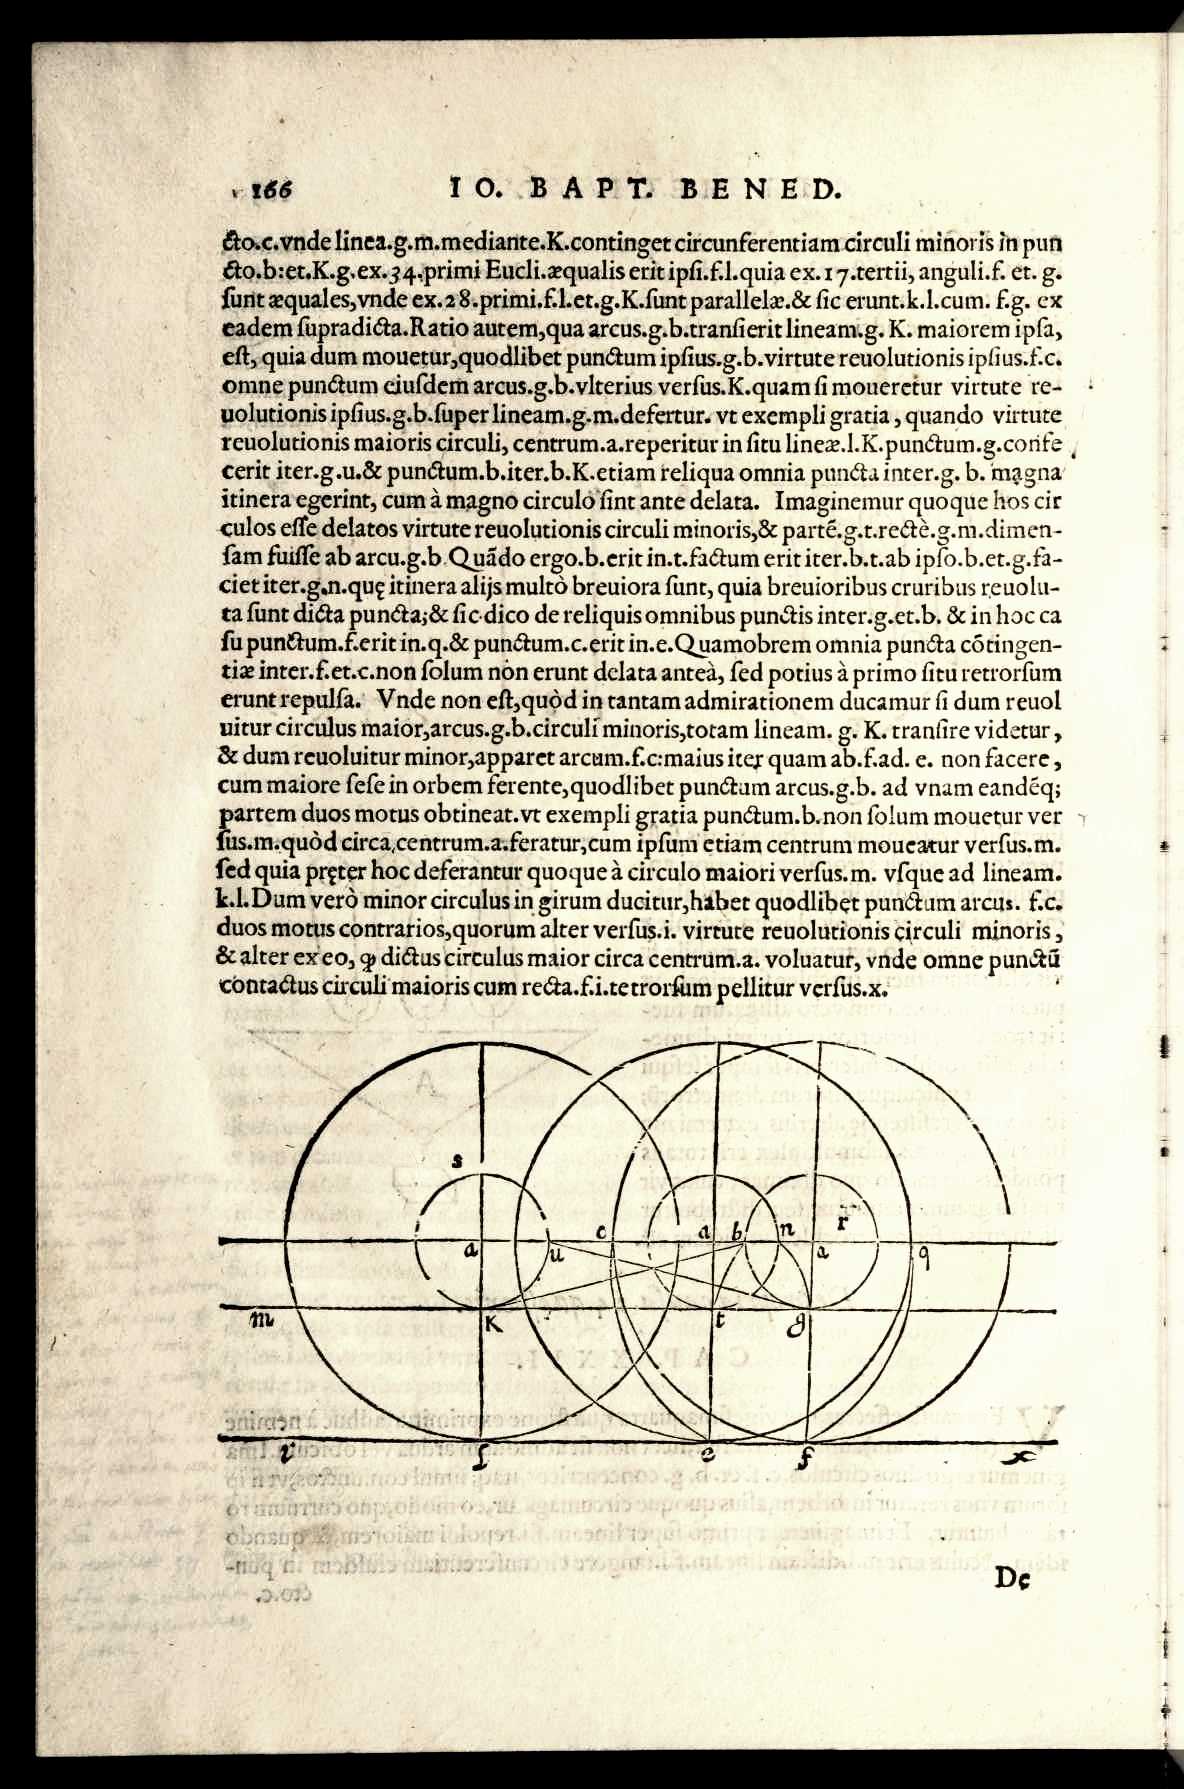 166 IO. BAPT. BENED.
cto.c.vnde linea.g.m.mediante.K.continget circunferentiam circuli minoris in pun
cto.b:et.K.g.ex.34.primi Eucli.æqualis erit ipſi.f.l.quia ex.17.tertii, anguli.f. et. g.
ſunt æquales,vnde ex.28.primi.f.l.et.g.K.ſunt parallelæ.& ſic erunt.k.l.cum. f.g. ex
eadem ſupradicta.Ratio autem,qua arcus.g.b.tranſierit lineam.g. K. maiorem ipſa,
eſt, quia dum mouetur,quodlibet punctum ipſius.g.b.virtute reuolutionis ipſius.f.c.
omne punctum eiuſdem arcus.g.b.vlterius verſus.K.quam ſi moueretur virtute re-
uolutionis ipſius.g.b.ſuper lineam.g.m.defertur. vt exempli gratia, quando virtute
reuolutionis maioris circuli, centrum.a.reperitur in ſitu lineæ.l.K.punctum.g.confe
cerit iter.g.u.& punctum.b.iter.b.K.etiam reliqua omnia puncta inter.g. b. magna
itinera egerint, cum à magno circulo ſint ante delata. Imaginemur quoque hos cir
culos eſſe delatos virtute reuolutionis circuli minoris,& partē.g.t.rectè.g.m.dimen-
ſam fuiſſe ab arcu.g.b.Quādo ergo.b.erit in.t.factum erit iter.b.t.ab ipſo.b.et.g.fa-
ciet iter.g.n.quę itinera alijs multò breuiora ſunt, quia breuioribus cruribus reuolu-
ta ſunt dicta puncta;& ſic dico de reliquis omnibus punctis inter.g.et.b. & in hoc ca
ſu punctum.f.erit in.q.& punctum.c.erit in.e.Quamobrem omnia puncta cōtingen-
tiæ inter.f.et.c.non ſolum non erunt delata anteà, ſed potius à primo ſitu retrorſum
erunt repulſa. Vnde non eſt,quòd in tantam admirationem ducamur ſi dum reuol
uitur circulus maior,arcus.g.b.circuli minoris,totam lineam. g. K. tranſire videtur,
& dum reuoluitur minor,apparet arcum.f.c:maius iter quam ab.f.ad. e. non facere,
cum maiore ſeſe in orbem ferente,quodlibet punctum arcus.g.b. ad vnam eandēq;
partem duos motus obtineat.vt exempli gratia punctum.b.non ſolum mouetur ver
ſus.m.quòd circa,centrum.a.feratur,cum ipſum etiam centrum moueatur verſus.m.
ſed quia pręter hoc deferantur quoque à circulo maiori verſus.m. vſque ad lineam.
k.l.Dum verò minor circulus in girum ducitur,habet quodlibet punctum arcus. f.c.
duos motus contrarios,quorum alter verſus.i. virtute reuolutionis circuli minoris,
& alter ex eo, ꝙ dictus circulus maior circa centrum.a. voluatur, vnde omne punctū
contactus circuli maioris cum recta.f.i.tetrorſum pellitur verſus.x.
s
a u c a b n r a q
m K t g
i l e f x
De